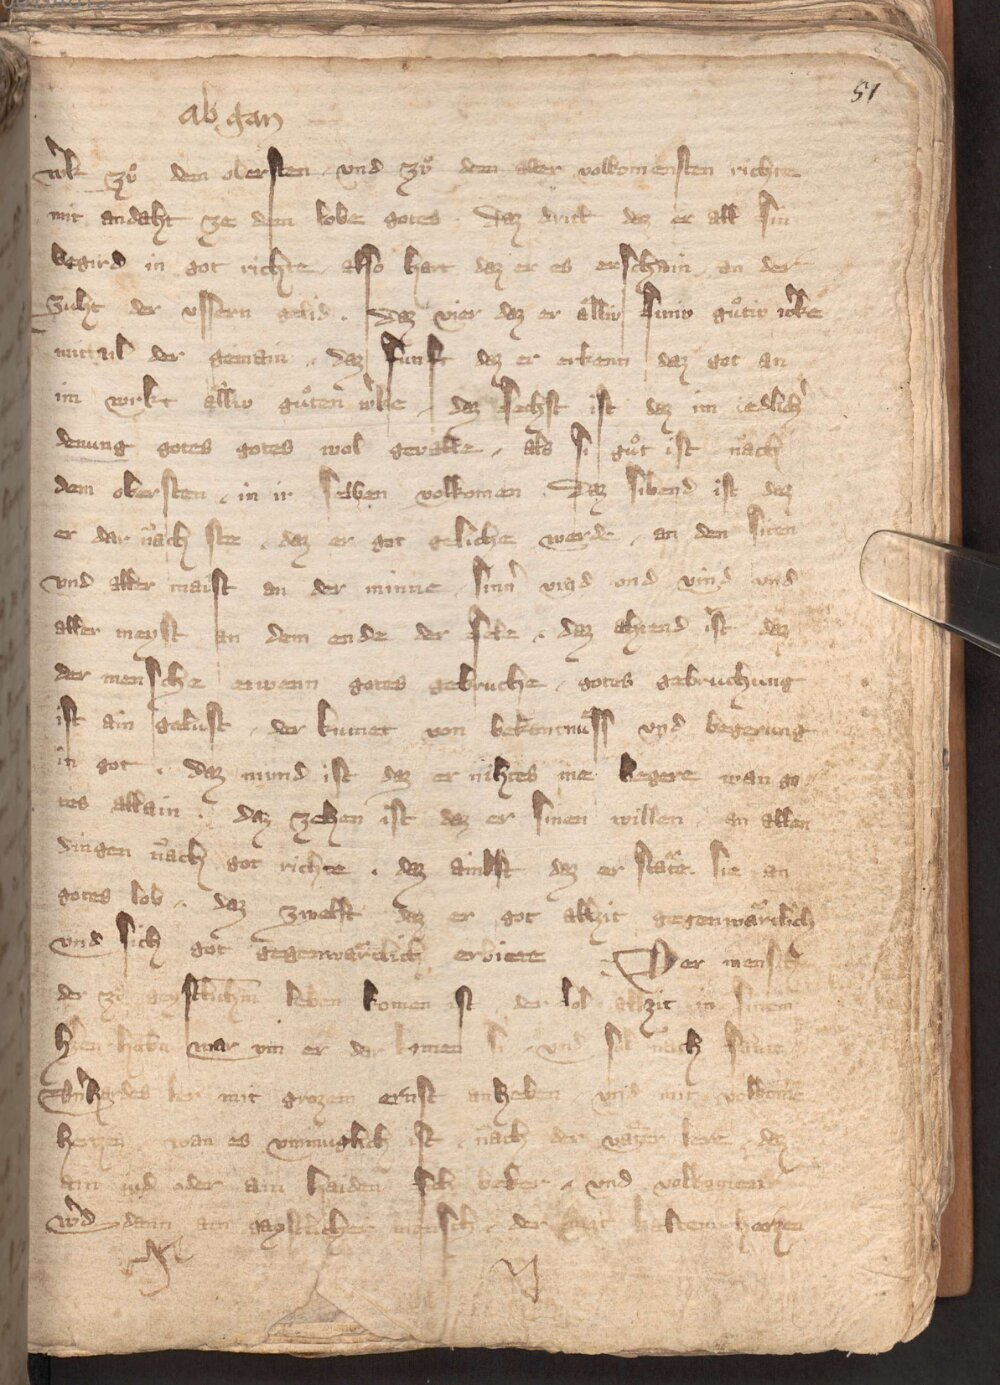 51
ab gan
wͤrk zuͦ den obersten und zuͦ dem aller volkomensten richte
mit andaht ze dem lobe gotes . Daz drit daz er all sin
begird in got richte . also hart daz er es erschain an der
zuht der ussern gelid . Daz vier daz er alliv siniv guͦtiv wͤrke
mittail der gemain . Daz funft daz er erkenn daz got an
im wrkt alliv guͦten wͤrke . daz sechst ist daz im iedlich
denung gotes gotes wol gevalle . als si guͦt ist nach
dem obersten . in ir selben volkomen . Daz sibend ist daz
er dar nach ste . daz er got geliche werde . an den siten
und aller maist an der minne sinn und und vind und
aller meyst an dem ende der sele . daz ahtend ist daz
der mensche etwenn gotes gebruche . gotes gebruchung
ist ain gelust . der kumet von bekentnuss und begerung
in got . daz niund ist daz er nihtes me begere wan go
tes allain . daz zehen ist daz er sinen willen an allen
dingen nach got richte . daz ainlift daz er staͤte sie an
gotes lob . daz zwelft daz er got allzit gegenwaͤrtlich
und sich got gegenwaͤrtlich erbiete . Der mensch
der zuͦ geystlichem leben komen ist der sol allzit in sinem
hertzen haben war um er dar komen si . und sol nach sant
ler mit grozem ernst anheben und mit volkome
hertzen . wan es unmuglich ist . nach der vatter lere . daz
ain iud oder ain haiden sich beker . und volkomen
wͤrd dann ain gaystlicher mensch . der mit kaltem hertzen